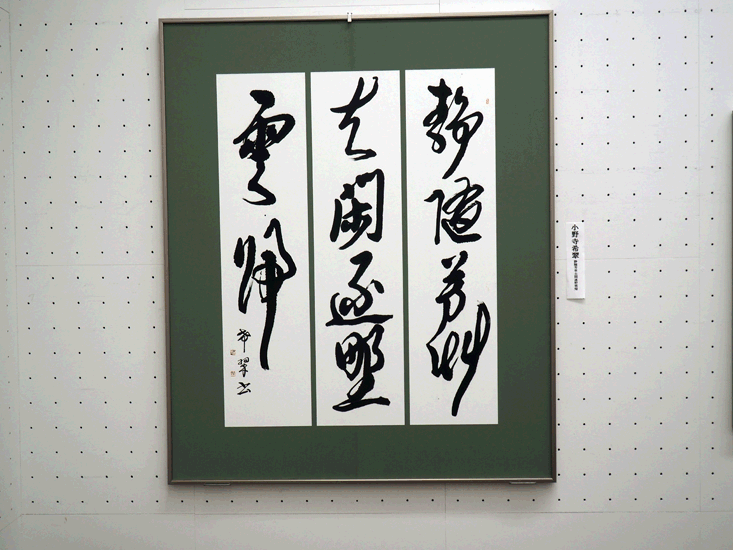 静随芳艸
去閑逐野
雲帰
希翠書
小野寺希翠